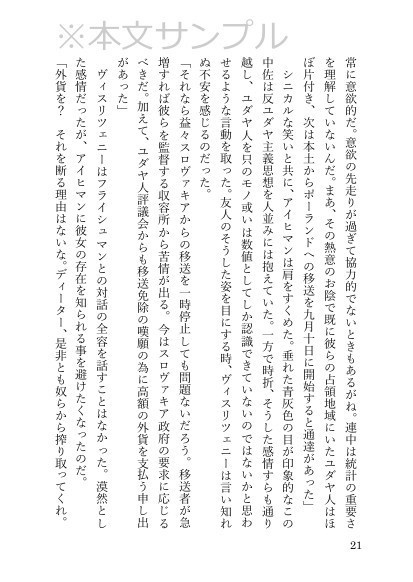 ※本文サンプル
常に意欲的だ。意欲の先走りが過ぎて協力的でないときもあるがね。連中は統計の重要さ
を理解していないんだ。まあ、その熱意のお陰で既に彼らの占領地域にいたユダヤ人はほ
ぼ片付き、次は本土からポーランドへの移送を九月十日に開始すると通達があった」
　シニカルな笑いと共に、アイヒマンは肩をすくめた。垂れた青灰色の目が印象的なこの
中佐は反ユダヤ主義思想を人並みには抱えていた。一方で時折、そうした感情すらも通り
越し、ユダヤ人を只のモノ或いは数値としてしか認識できていないのではないかと思わ
せるような言動を取った。友人のそうした姿を目にする時、ヴィスリツェニーは言い知れ
ぬ不安を感じるのだった。
「それなら益々スロヴァキアからの移送を一時停止しても問題ないだろう。移送者が急
増すれば彼らを監督する収容所から苦情が出る。今はスロヴァキア政府の要求に応じる
べきだ。加えて、ユダヤ人評議会からも移送免除の嘆願の為に高額の外貨を支払う申し出
があった」
　ヴィスリツェニーはフライシュマンとの対話の全容を話すことはなかった。漠然とし
た感情だったが、アイヒマンに彼女の存在を知られる事を避けたくなったのだ。
「外貨を？　それを断る理由はないな。ディーター、是非とも奴らから搾り取ってくれ。
21